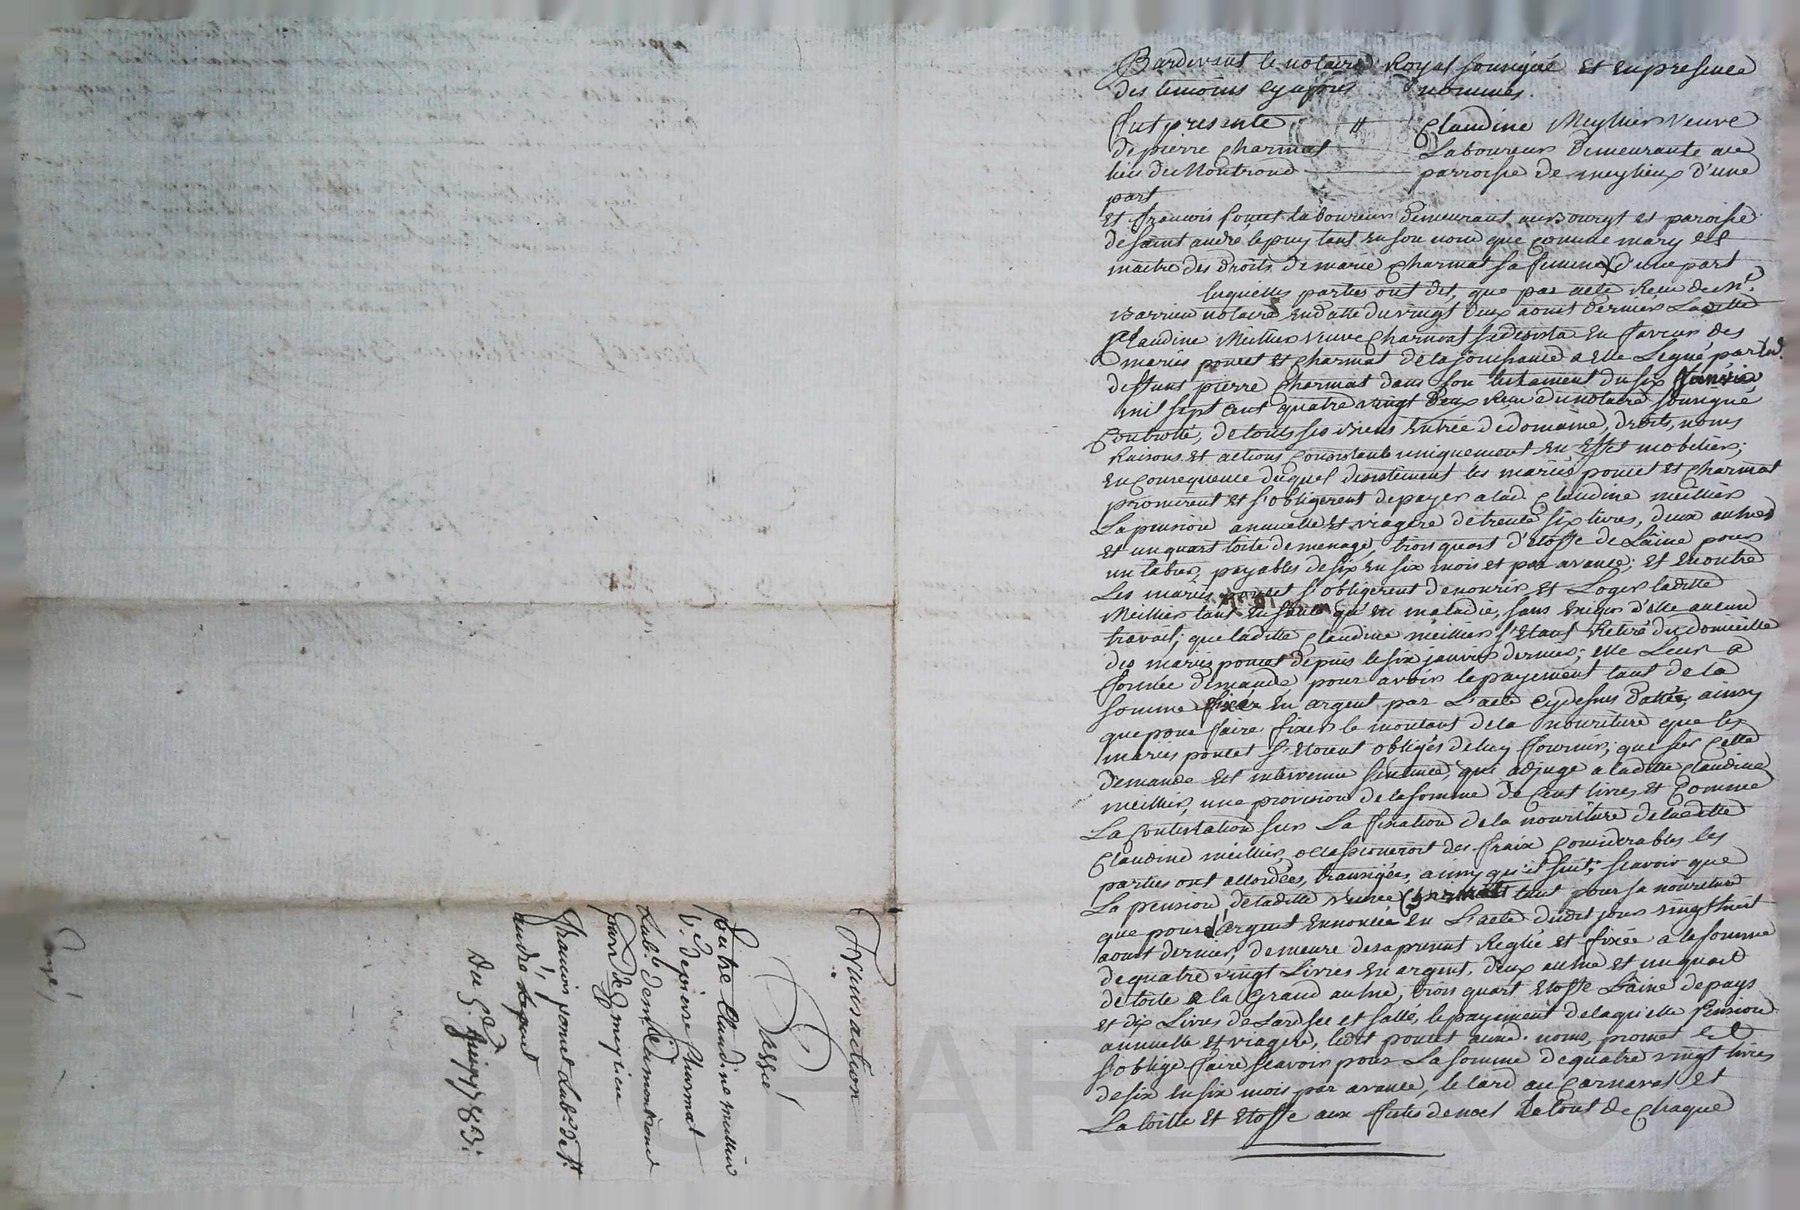 Pardevant le notaire Royal soussigné et en presence
des temoins cy apres nommés.
fut presente Claudine Meyllier veuve
de pierre charmat Laboureur demeurante au
lieu de Montrond parroisse de meylieux d'une
part
et francois poncet laboureur demeurant au Bourg et paroisse
de saint andré le puy tant en son nom que comme mary et
maitre des droits de marie charmat sa femme d'une part
lesquelles parties ont dit, que par acte Recu de Me.
Barrieu notaire en datte du vingt deux aoust dernier Laditte
Claudine Meillier veuve Charmat se desista en faveur des
mariés poncet et charmat de la jouissance a elle Legué par led.
deffunt pierre charmat dans son testament du six
mil sept cent quatre vingt deux Recu du notaire soussigné
Controllé, de touts ses Biens entrée de domaine, droits, noms
Raisons et actions Consistants uniquement en effet mobiliers;
en Consequence duquel desistement les mariés poncet et charmat
promirent et s'obligerent de payer a lad. Claudine meillier
La pension annuelle et viagere de trente six livres, deux aulnes
et un quart toile de menage, trois quart d'etoffe de Laine pour
un tablier, payables de six en six mois et par avance; et en outre
Les mariés poncet s'obligerent de nourir et Loger laditte
Meillier tant en santé qu'en maladie, sans exiger d'elle aucun
travail; que laditte Claudine meillier s'etant Retiré du domicille
des mariés poncet depuis le six janvier dernier; elle Leur a
formée demande pour avoir le payement tant de la
somme fixée en argent par L'acte cy dessus datté, ainsy
que pour faire fixer le montant de la nouriture que les
mariés poncet s'etoient obligés de luy fournir; que sur Cette
demande est intervenue sentence, qui adjuge a laditte Claudine
meillier, une provision de la somme de Cent livres et Comme
La Contestation sur La fixation de la nouriture de laditte
Claudine meillier, occasioneroit des fraix Considerables les
parties ont accordées, transigées, ainsy qu'il suit; scavoir que
La pension de laditte veuve Charmat tant pour sa nouriture
que pour l'argent ennoncée en L'acte dudit jour vingt huit
aoust dernier, demeure des a present Reglée et fixée a la somme
de quatre vingt Livres en argent, deux aulne et un quart
de toile a la Grand aulne, trois quart etoffe Laine de pays
et dix Livres de Lard sec et sallé, le payement de laquelle Pension
annuelle et viagere, ledit poncet aud. noms, promet et
s'oblige faire scavoir pour La somme de quatre vingt livres
de six en six mois par avance, le lard au Carnaval et
La toille et etoffe aux fetes de noel Le tout de Chaque
Transaction
Passé
Entre Claudine meillier
Ve. de pierre Charmat
Labr. dem. a montrond
parr. de meylieu
francois poncet Labr. de St.
andré le puit
Du 5e. 1783.